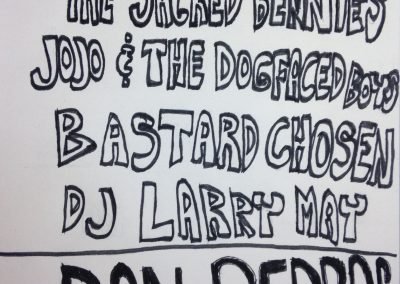 THE SACRED BENNIES
JOJO & THE DOGFACED BOYS
BASTARD CHOSEN
DJ LARRY MAY
DON PEDROS